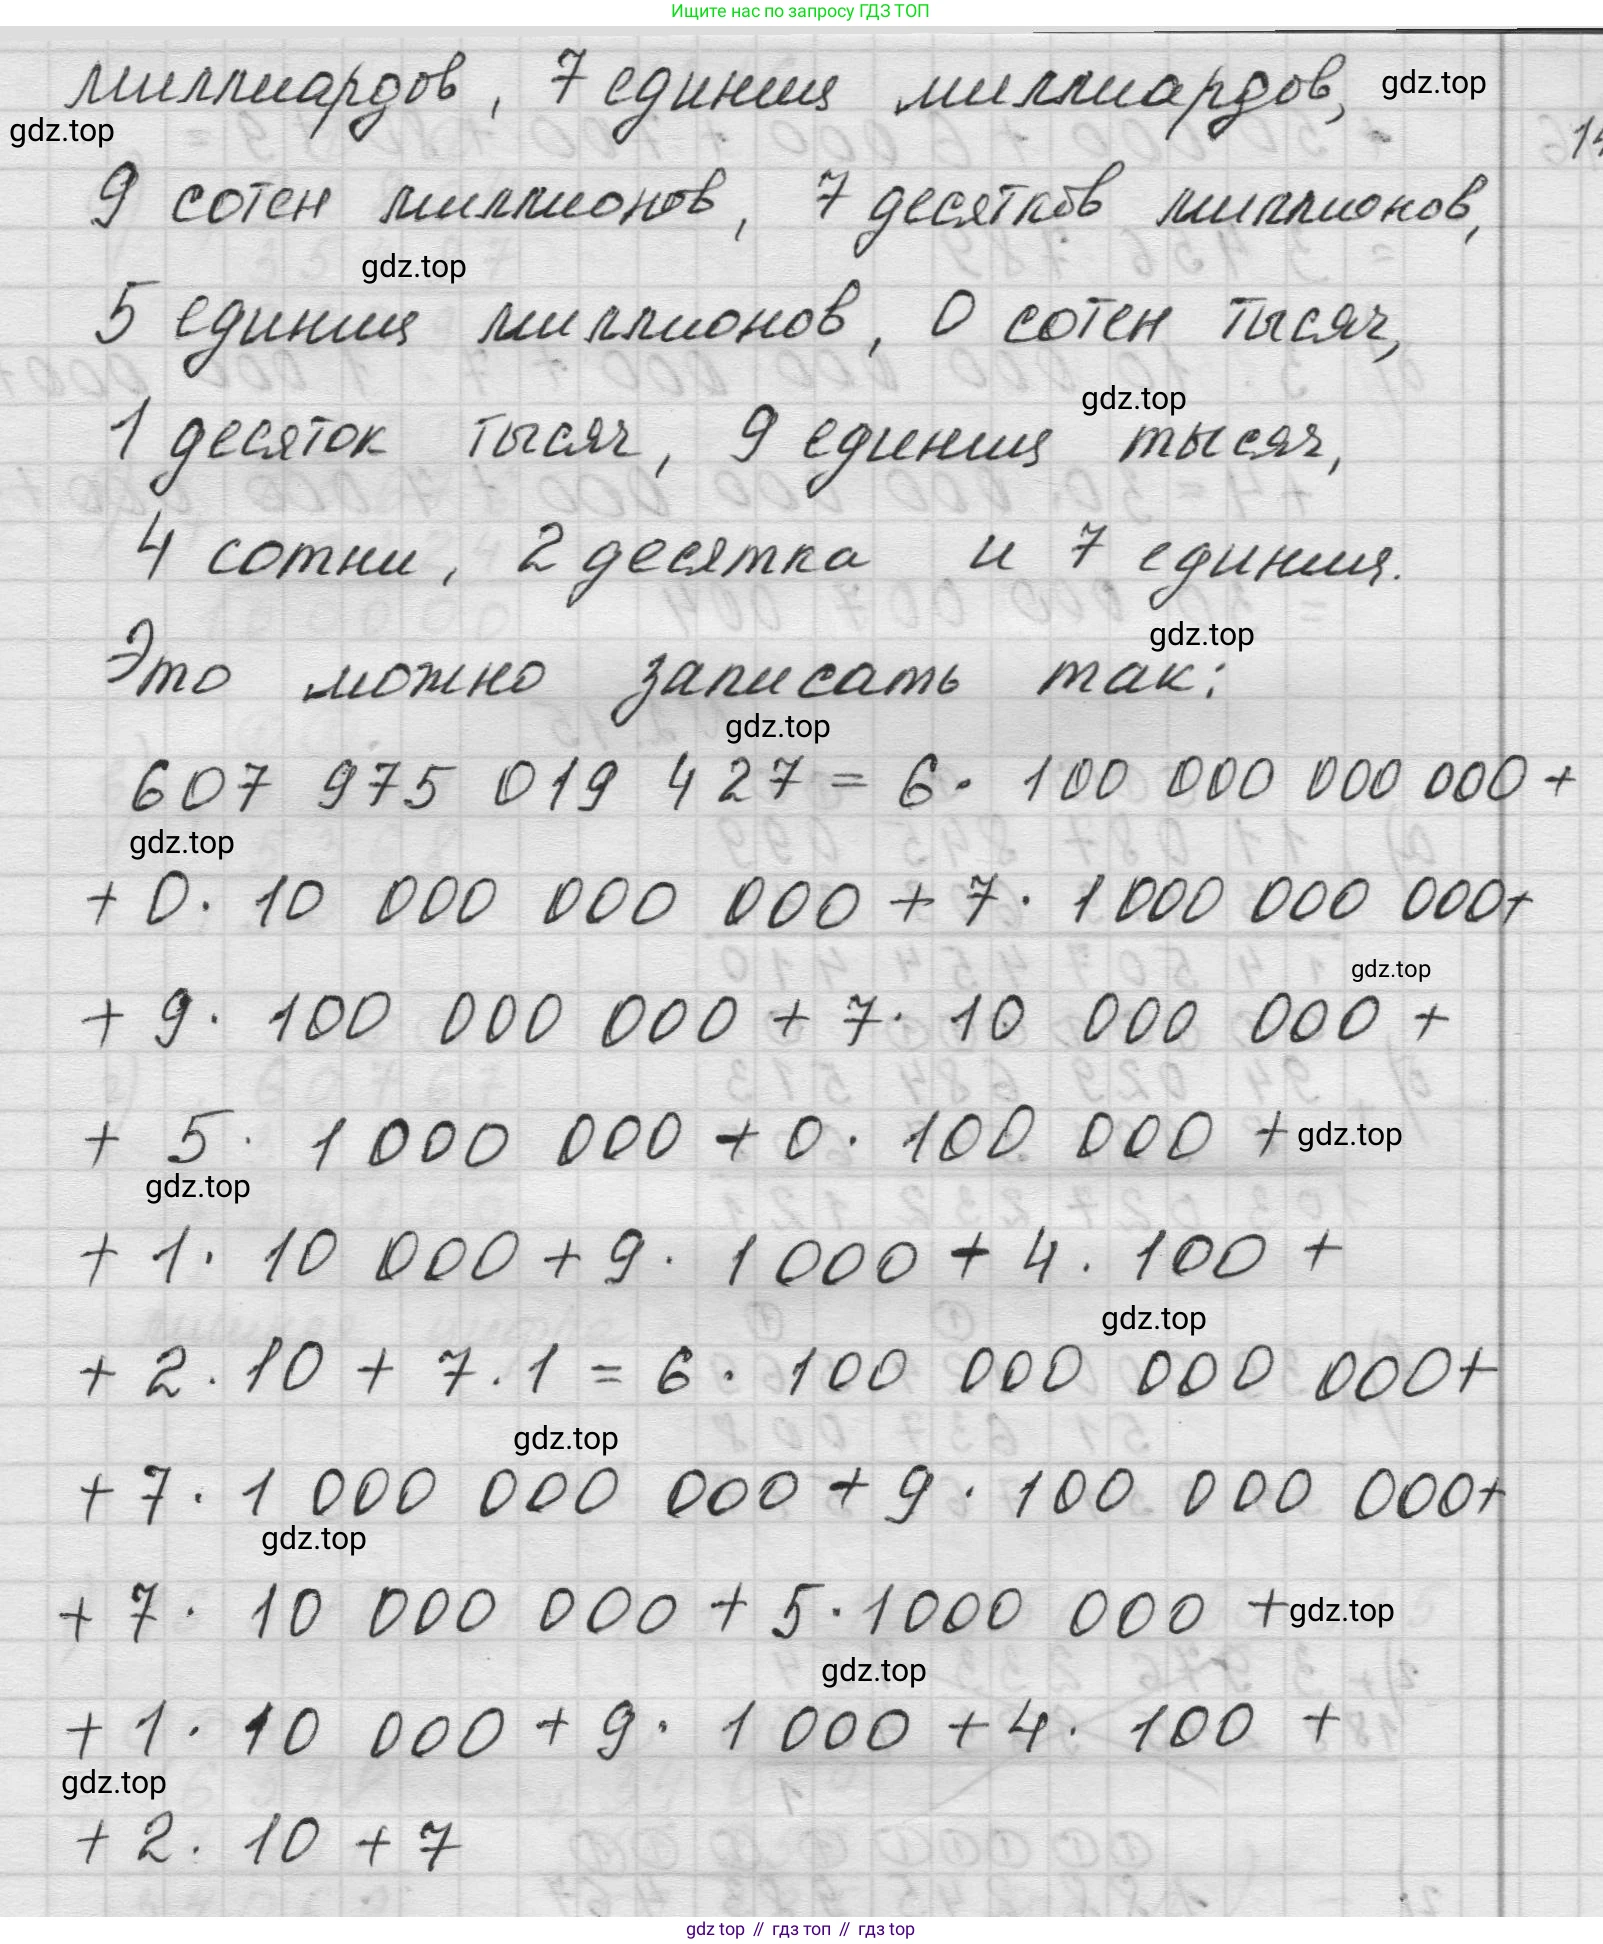 Ищите нас по запросу ГДЗ ТОП
миллиардов, 7 единиц миллиардов,
gdz.top
gdz.top
14
9 сотен миллионов, 7 десятков миллионов,
gdz.top
5 единиц миллионов, 0 сотен тысяч,
gdz.top
1 десяток тысяч, 9 единиц тысяч,
4 сотни, 2 десятка и 7 единиц.
gdz.top
Это можно записать так:
gdz.top
607 975 019 427 = 6 · 100 000 000 000 +
gdz.top
+ 0 · 10 000 000 000 + 7 · 1 000 000 000 +
gdz.top
+ 9 · 100 000 000 + 7 · 10 000 000 +
+ 5 · 1 000 000 + 0 · 100 000 +
gdz.top
gdz.top
+ 1 · 10 000 + 9 · 1 000 + 4 · 100 +
gdz.top
+ 2 · 10 + 7 · 1 = 6 · 100 000 000 000 +
gdz.top
+ 7 · 1 000 000 000 + 9 · 100 000 000 +
gdz.top
+ 7 · 10 000 000 + 5 · 1 000 000 +
gdz.top
gdz.top
+ 1 · 10 000 + 9 · 1 000 + 4 · 100 +
gdz.top
+ 2 · 10 + 7
gdz top // гдз топ // гдз top